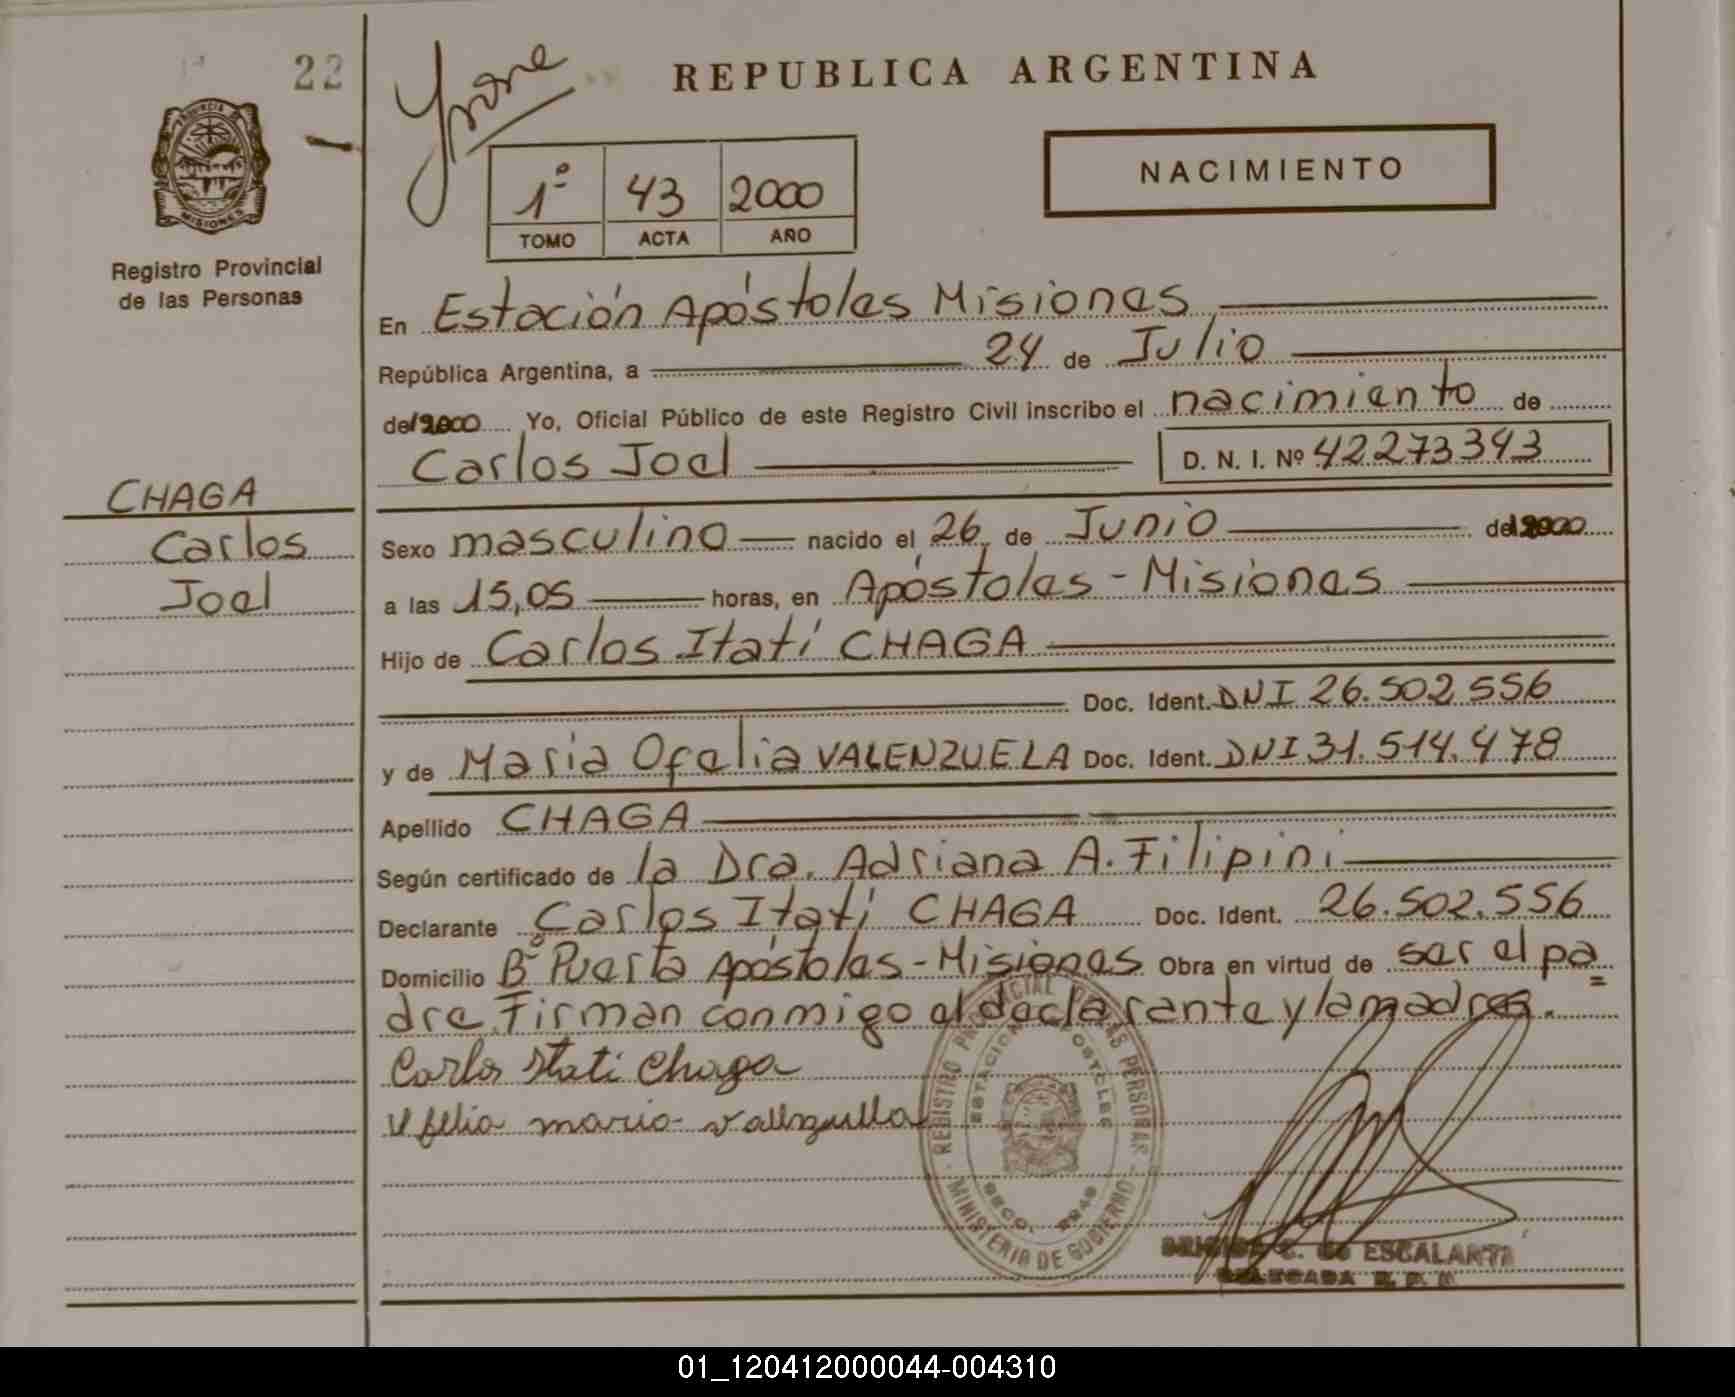 22
Yvone
REPUBLICA ARGENTINA
PROVINCIA DE
MISIONES
Registro Provincial
de las Personas
1º 43 2000
TOMO ACTA AÑO
NACIMIENTO
En Estación Apóstoles Misiones
República Argentina, a 24 de Julio
del 2000 Yo, Oficial Público de este Registro Civil inscribo el nacimiento de
Carlos Joel D. N. I. Nº 42273343
CHAGA
Carlos
Joel
Sexo masculino nacido el 26 de Junio del 2000
a las 15,05 horas, en Apóstoles - Misiones
Hijo de Carlos Itatí CHAGA
Doc. Ident. DNI 26.502.556
y de Maria Ofelia VALENZUELA Doc. Ident. DNI 31.514.478
Apellido CHAGA
Según certificado de la Dra. Adriana A. Filipini
Declarante Carlos Itatí CHAGA Doc. Ident. 26.502.556
Domicilio Bº Puerta Apóstoles - Misiones Obra en virtud de ser el pa=
dre. Firman conmigo el declarante y la madre.
Carlos Itati Chaga
Ofelia maria valenzuella
REGISTRO PROVINCIAL DE LAS PERSONAS
MINISTERIO DE GOBIERNO
C. de ESCALANTE
DELEGADA R. P. P.
01_120412000044-004310